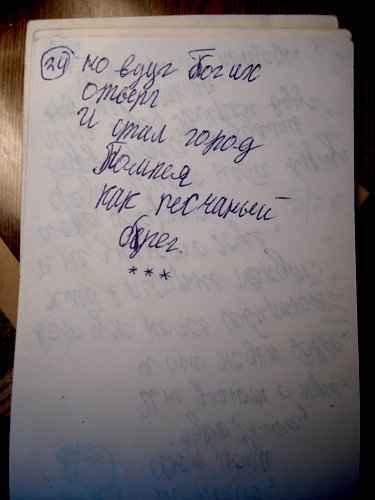 24 но вдуг Бог их
отверг
И стал город
Помпея
как песчаный
брег.
***